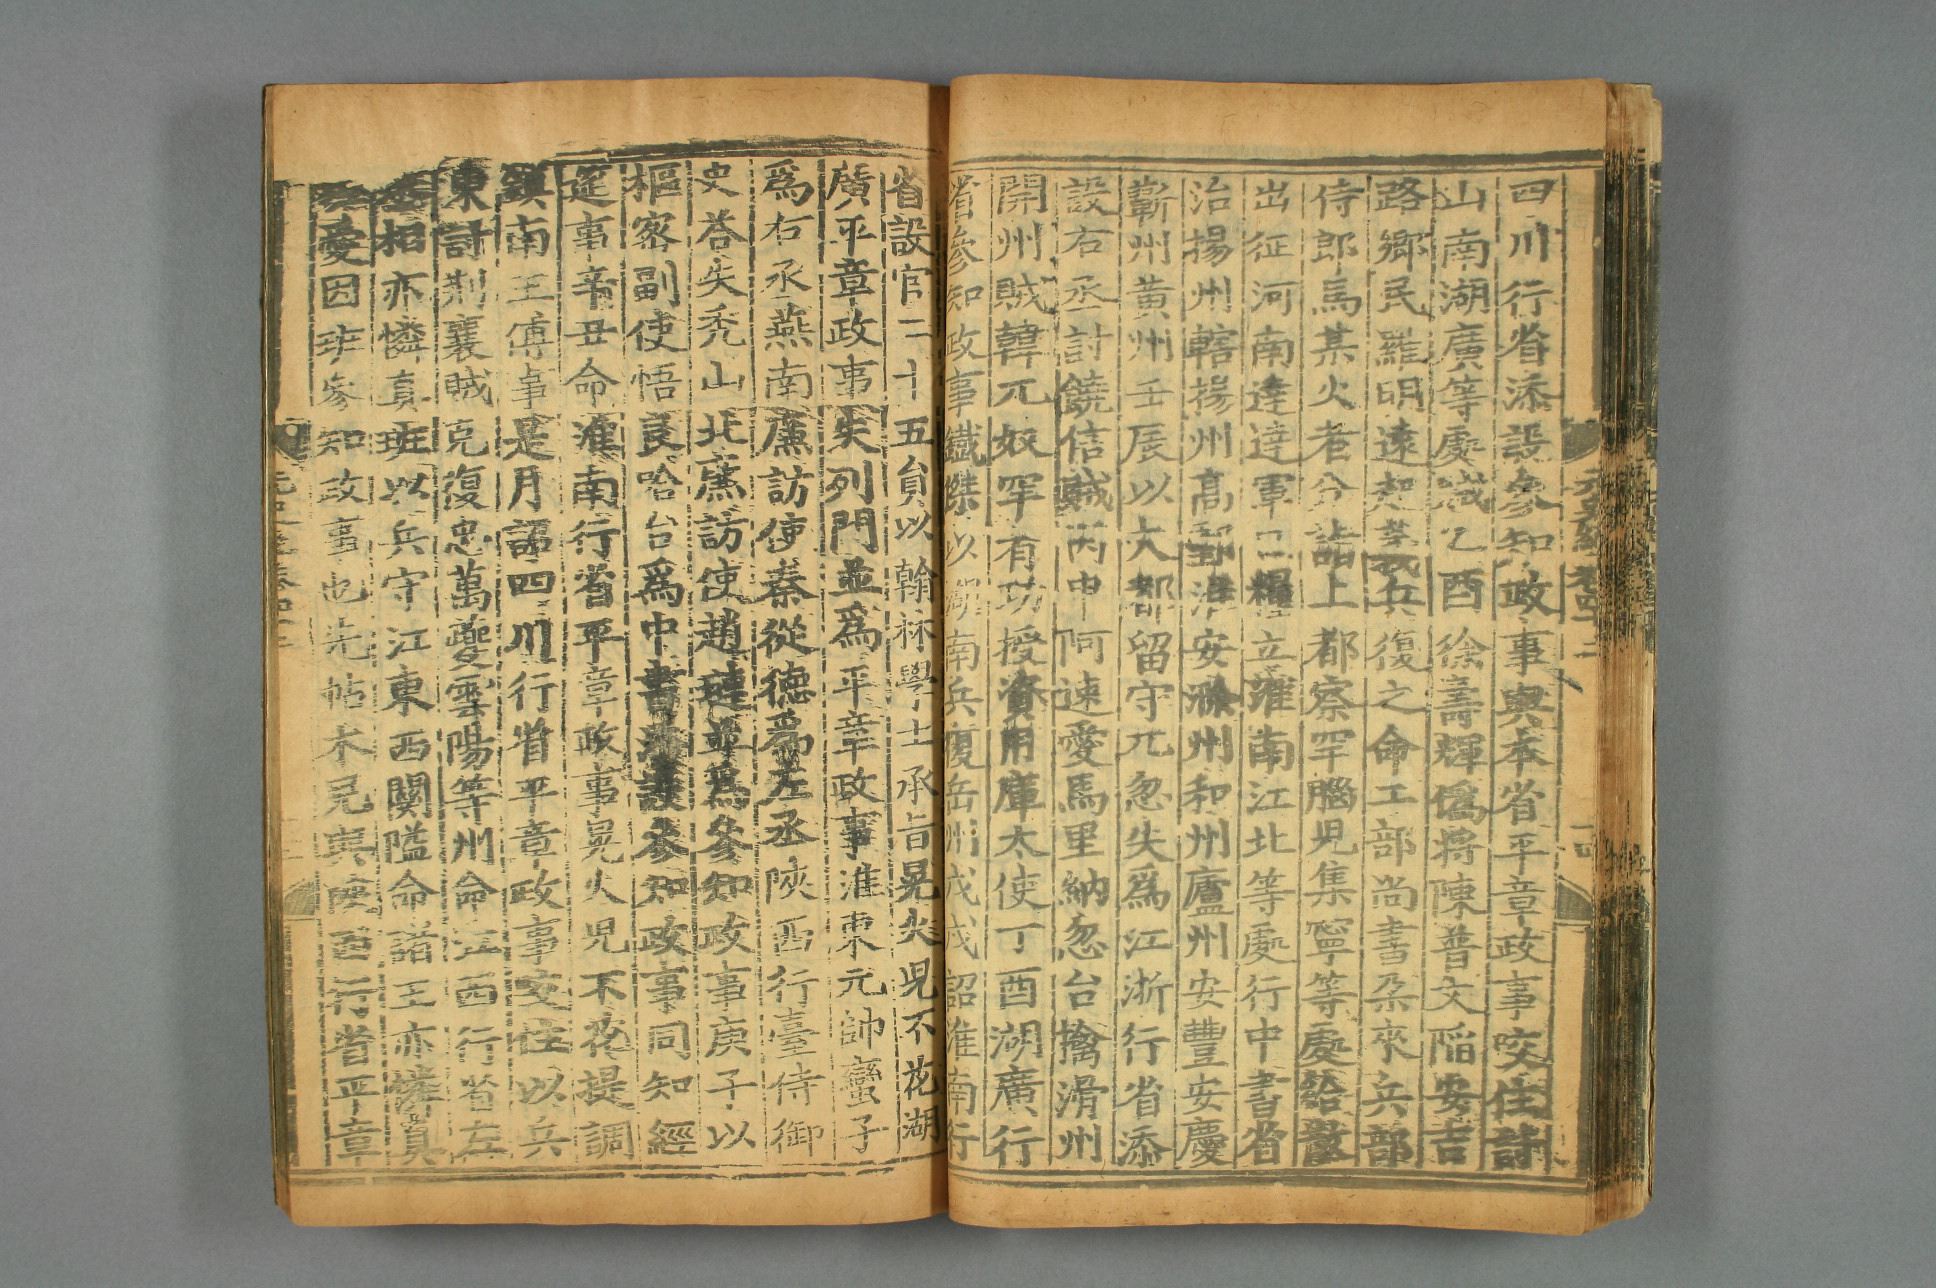 四川行省添設參知政事與本省平章政事咬住討
山南湖廣等處賊乙酉徐壽輝僞將陳普文陷安吉
路鄉民羅明遠起義兵復之命工部尚書朶來兵部
侍郎馬某火者分詣上都察罕腦兒集寧等處給散
出征河南達達軍口糧立淮南江北等處行中書省
治揚州轄揚州高郵淮安滁州和州廬州安豐安慶
蘄州黃州壬辰以大都留守兀忽失爲江浙行省添
設右丞討饒信賊丙申阿速愛馬里納忽台擒滑州
開州賊韓兀奴罕有功授資用庫大使丁酉湖廣行
省參知政事鐵傑以湖南兵復岳州戊戌詔淮南行
省設官二十五員以翰林學士承旨晃火兒不花湖
廣平章政事失列門並爲平章政事淮東元帥蠻子
爲右丞燕南廉訪使秦從德爲左丞陝西行臺侍御
史荅失禿山北廉訪使趙璉並爲參知政事庚子以
樞密副使悟良哈台爲中書添設參知政事同知經
筵事辛丑命淮南行省平章政事晃火兒不花提調
鎮南王傅事是月詔四川行省平章政事咬住以兵
東討荊襄賊克復忠萬夔雲陽等州命江西行省左
丞相亦憐真班以兵守江東西關隘命諸王亦憐真
愛因班參知政事也先帖木兒與陝西行省平章